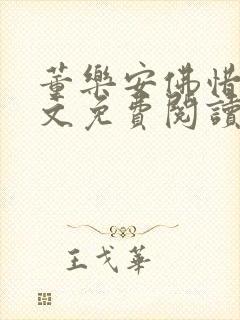 董樂安佛惜
文免費閱讀
王戈華